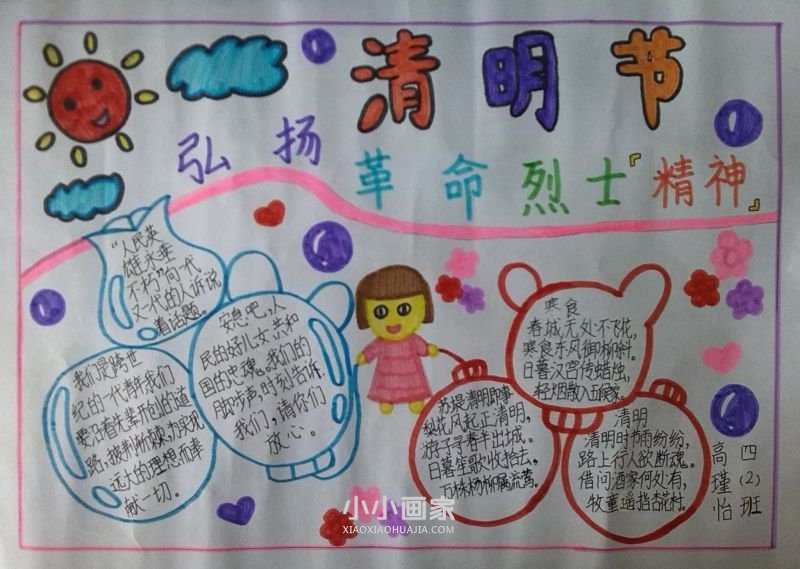 清明节
弘扬
革命烈士『精神』
“人民英
雄永垂
不朽”向一代
又一代的人诉说
着话题。
我们是跨世
纪的一代青年我们
要沿着先辈开创的道
路，披荆斩棘，为实现
远大的理想而奉
献一切。
安息吧，人
民的好儿女，共和
国的忠魂，我们的
脚步声，时刻告诉
我们，请你们
放心。
苏堤清明即事
梨花风起正清明，
游子寻春半出城。
日暮笙歌收拾去，
万株杨柳属流莺。
寒食
春城无处不飞花，
寒食东风御柳斜。
日暮汉宫传蜡烛，
轻烟散入五侯家。
清明
清明时节雨纷纷，
路上行人欲断魂。
借问酒家何处有，
牧童遥指杏花村。
四(2)班
高瑾怡
小小画家
XIAOXIAOHUAJIA.COM